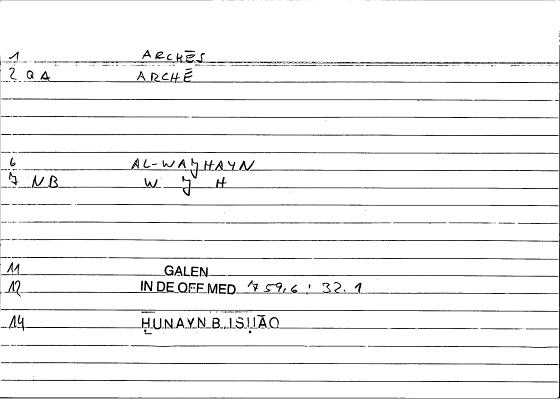 1 ARCHĒS
2 QA ARCHĒ
6 AL-WAJHAYN
7 NB W J H
11 GALEN
12 IN DE OFF MED 759,6 : 32.1
14 ḤUNAYN B. ISḤĀQ